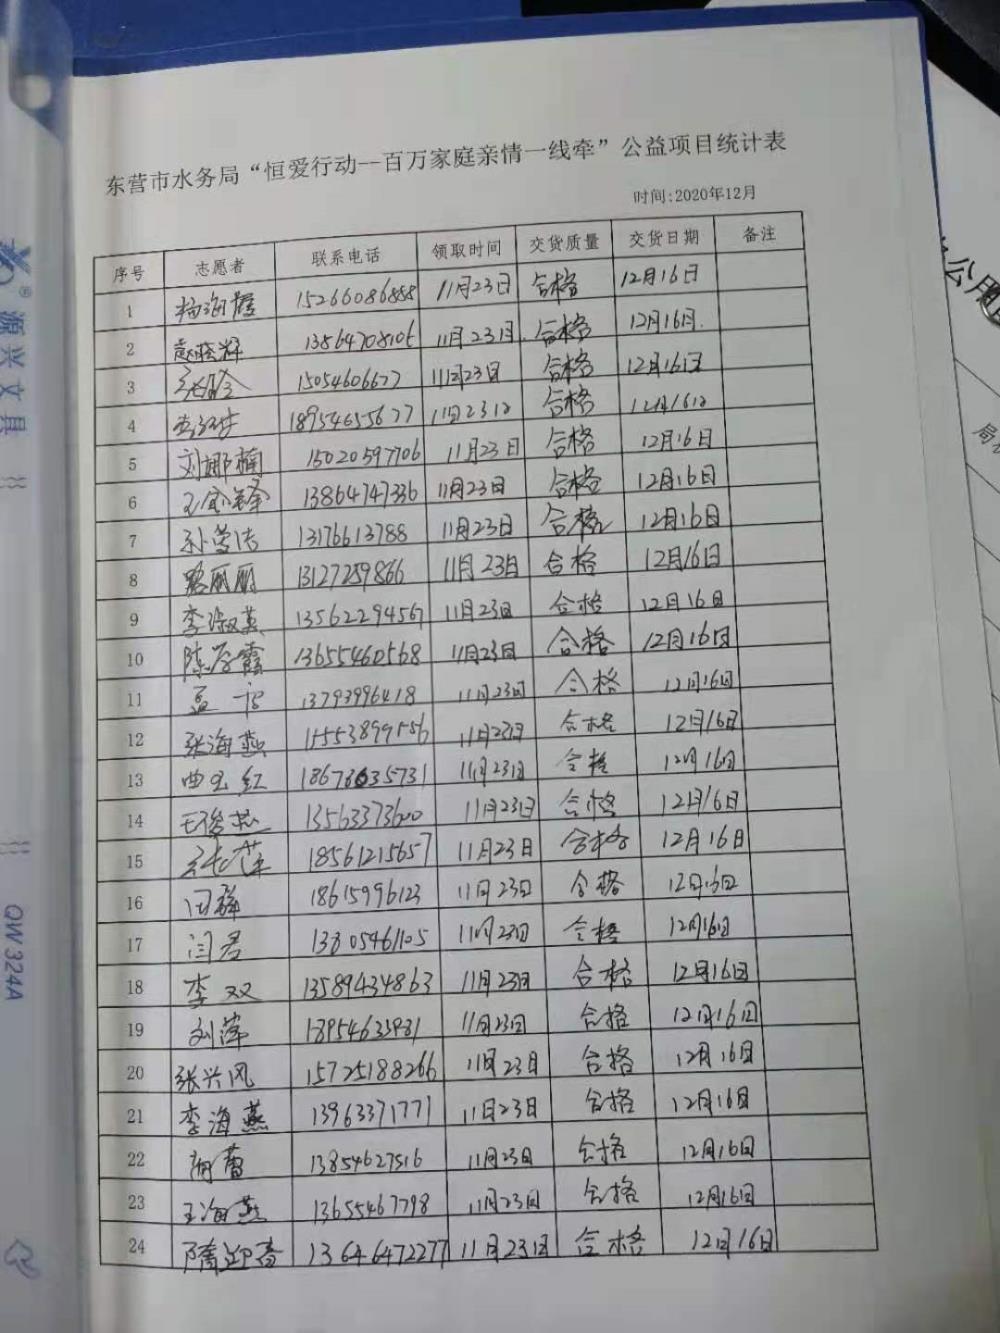 东营市水务局“恒爱行动--百万家庭亲情一线牵”公益项目统计表
时间:2020年12月
序号 志愿者 联系电话 领取时间 交货质量 交货日期 备注
1 杨海霞 15266086888 11月23日 合格 12月16日
2 赵晓辉 13864708106 11月23日 合格 12月16日
3 张晗 15054606677 11月23日 合格 12月16日
4 18954655677 11月23日 合格 12月16日
5 刘娜楠 15020597706 11月23日 合格 12月16日
6 王金锋 13864747336 11月23日 合格 12月16日
7 孙雪洁 13176613788 11月23日 合格 12月16日
8 丽丽 13127259866 11月23日 合格 12月16日
9 李淑英 13562294567 11月23日 合格 12月16日
10 陈存霞 13655460568 11月23日 合格 12月16日
11 孟 13793996418 11月23日 合格 12月16日
12 张海燕 15553899556 11月23日 合格 12月16日
13 曲玉红 18678635731 11月23日 合格 12月16日
14 王俊 13563373600 11月23日 合格 12月16日
15 张莲 18561215657 11月23日 合格 12月16日
16 闫 18615996123 11月23日 合格 12月16日
17 闫君 13805461105 11月23日 合格 12月16日
18 李双 13589434863 11月23日 合格 12月16日
19 刘萍 11月23日 合格 12月16日
20 张兴风 15725188266 11月23日 合格 12月16日
21 李海燕 13963371771 11月23日 合格 12月16日
22 胡蕾 13854627516 11月23日 合格 12月16日
23 王海燕 13655467798 11月23日 合格 12月16日
24 隋迎春 13646472277 11月23日 合格 12月16日
源兴文具
QW324A
公用
局